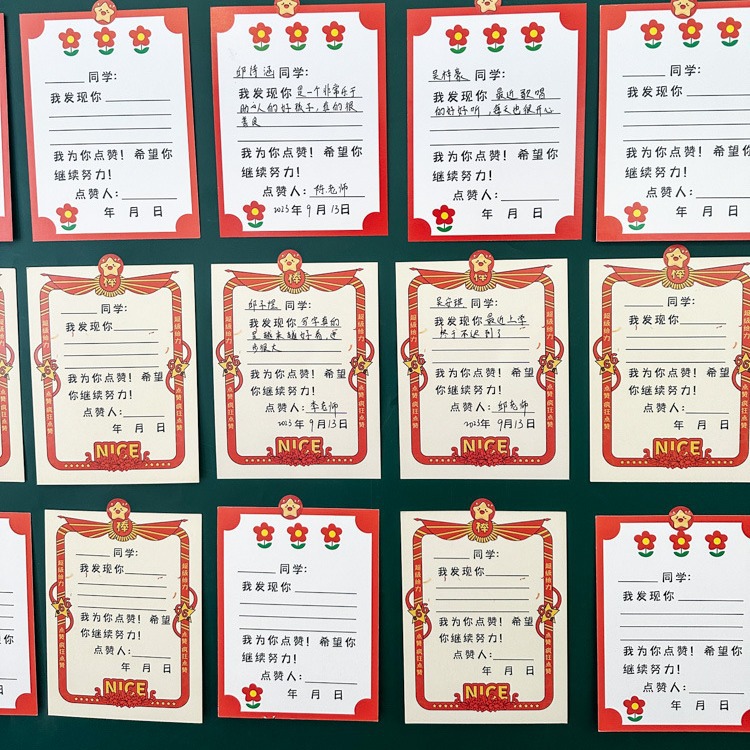 同学:
我发现你
我为你点赞! 希望你
继续努力!
点赞人:
年 月 日
同学:
我发现你 是一个非常乐于
助人的好孩子,真的很
善良
我为你点赞! 希望你
继续努力!
点赞人: 老师
2023年 9月 13日
吴梓豪 同学:
我发现你 最近歌唱
的好好听,每天也很开心
我为你点赞! 希望你
继续努力!
点赞人:
年 月 日
同学:
我发现你
我为你点赞! 希望你
继续努力!
点赞人:
年 月 日
棒
同学:
我发现你
我为你点赞! 希望
你继续努力!
点赞人:
年 月 日
超级给力
点赞疯狂点赞
NICE
棒
邱子煜 同学:
我发现你 写字真的
是越来越好看,进
步很大
我为你点赞! 希望
你继续努力!
点赞人: 李老师
2023年 9月 13日
超级给力
点赞疯狂点赞
NICE
棒
吴安琪 同学:
我发现你 最近上学
终于不迟到了
我为你点赞! 希望
你继续努力!
点赞人: 邱老师
2023年 9月 13日
超级给力
点赞疯狂点赞
NICE
棒
同学:
我发现你
我为你点赞! 希望
你继续努力!
点赞人:
年 月 日
超级给力
点赞疯狂点赞
NICE
棒
同学:
我发现你
我为你点赞! 希望
你继续努力!
点赞人:
年 月 日
超级给力
点赞疯狂点赞
NICE
同学:
我发现你
我为你点赞! 希望你
继续努力!
点赞人:
年 月 日
棒
同学:
我发现你
我为你点赞! 希望
你继续努力!
点赞人:
年 月 日
超级给力
点赞疯狂点赞
NICE
同学:
我发现你
我为你点赞! 希望你
继续努力!
点赞人:
年 月 日